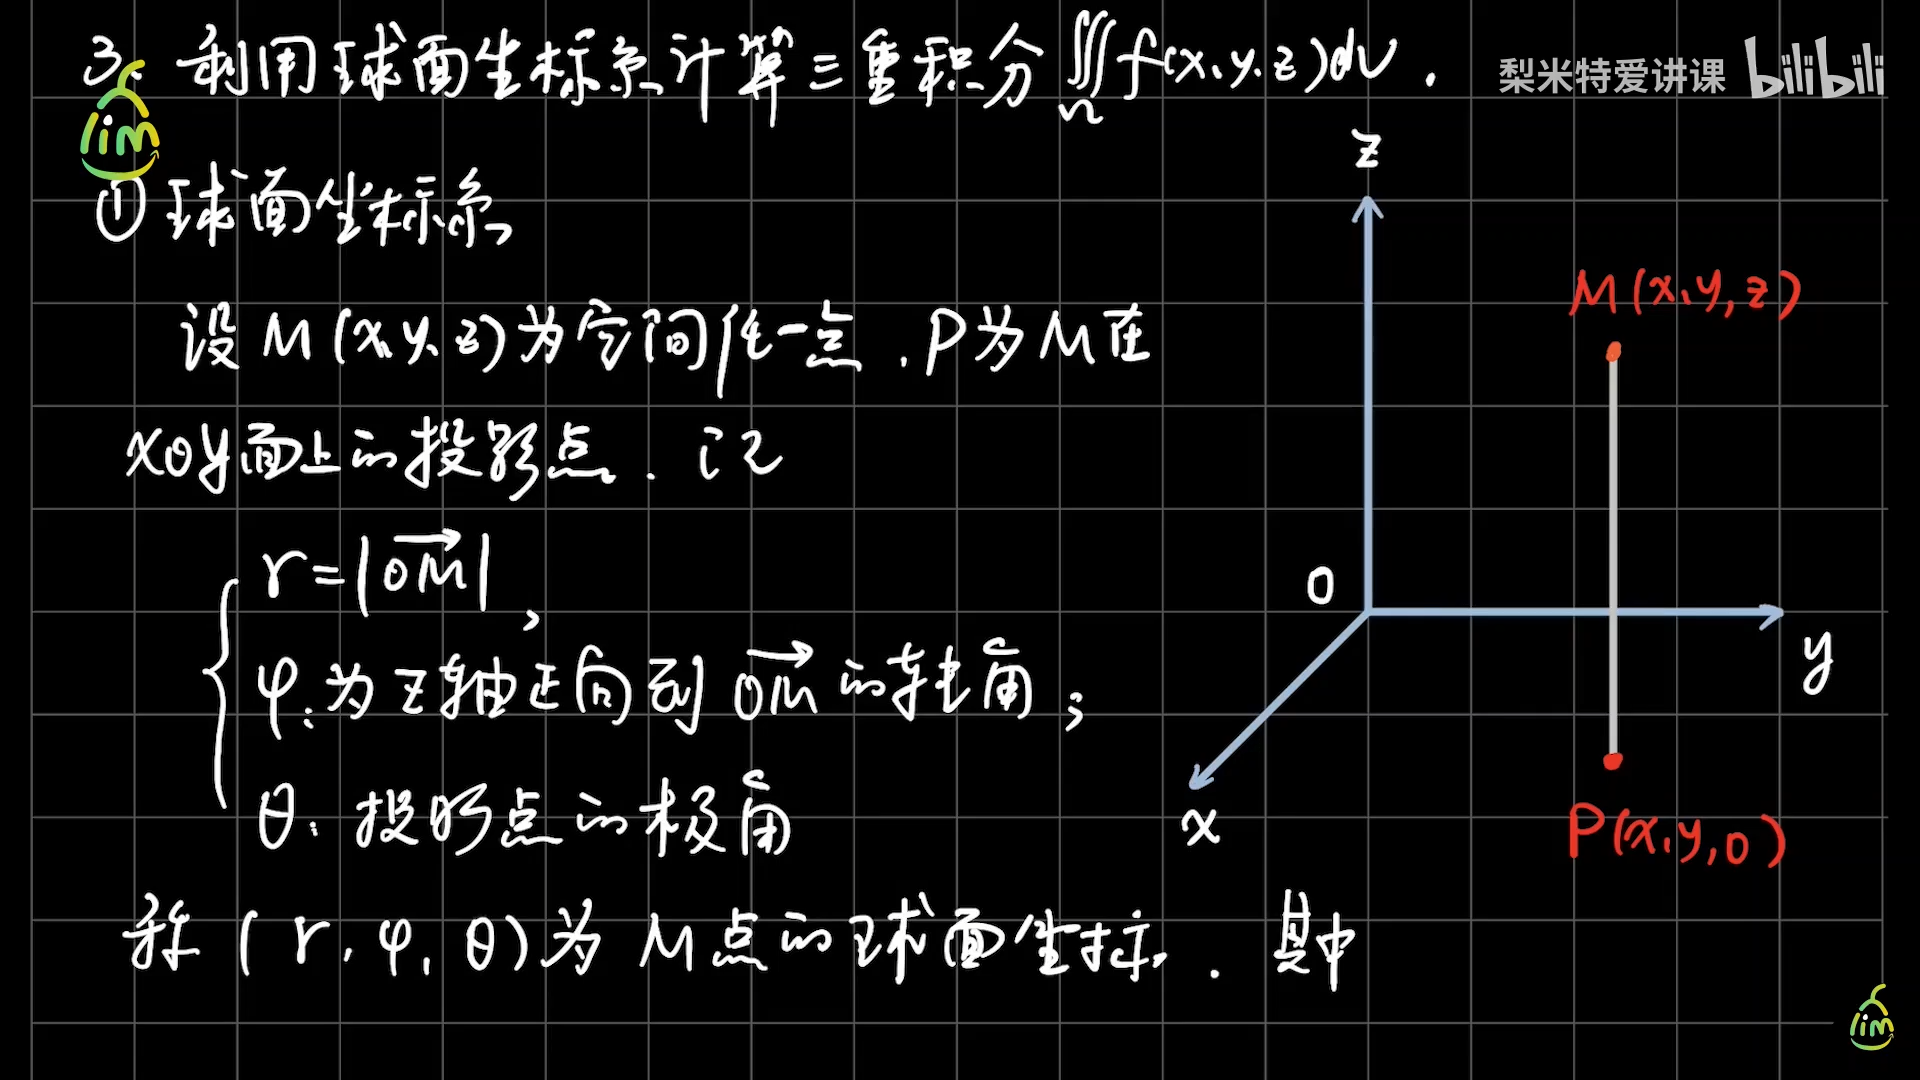 3. 利用球面坐标系计算三重积分∭_Ω f(x,y,z)dv.
梨米特爱讲课 bilibili
lim
① 球面坐标系
设 M(x,y,z)为空间任一点, P为M在
xoy面上的投影点. 记
r=|OM→|,
φ:为z轴正向到OM→的转角;
θ:投影点的极角
称(r,φ,θ)为M点的球面坐标. 其中
z
M(x,y,z)
O
y
x
P(x,y,0)
lim